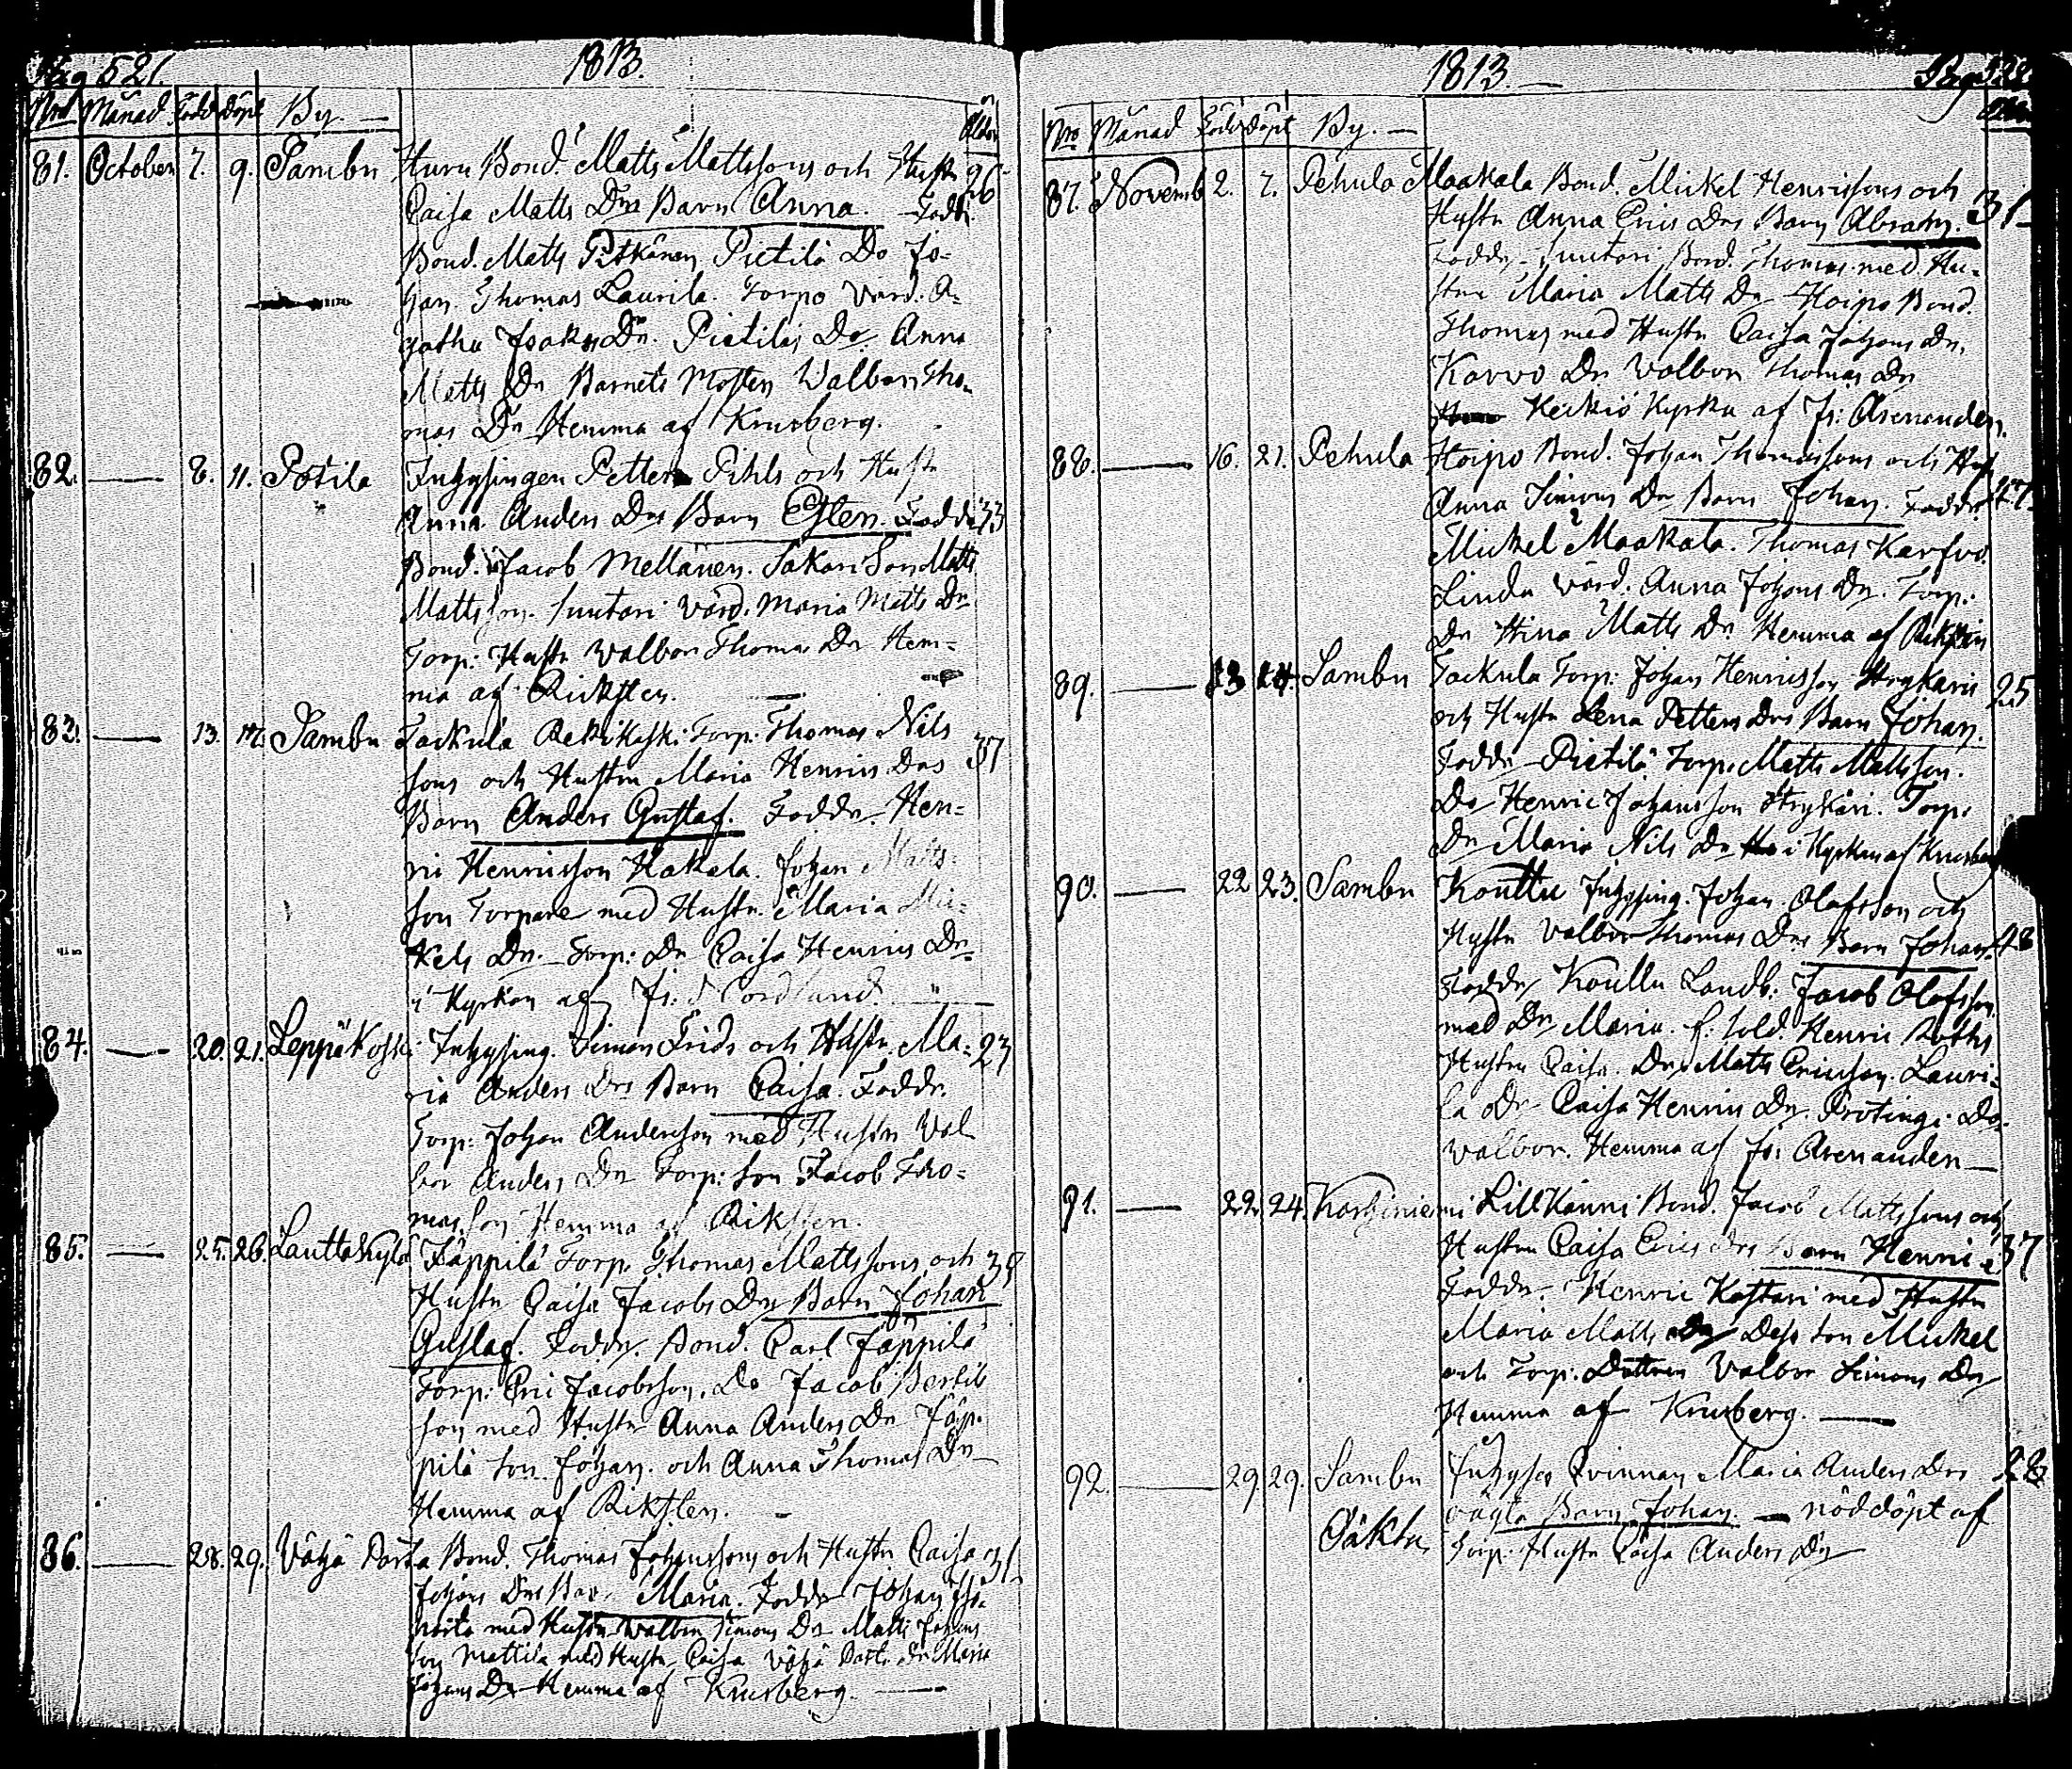 Pag 521.
1813.
Nro Månad Född Döpt By. — Ålder
81. October 7. 9. Sambu Huru Bond. Matts Mattssons och Hustr 26
Caisa Matts Drs Barn Anna. Faddr.
Bond. Matts Pitkänen Pietilä Do Jo=
han Thomas Laurila. Torpo Värd. A=
gatha Isaks Dr. Pietilä Do Anna
Matts Dr Barnets Moster Walbor Tho=
mas Dr Hemma af Krusberg.
82. — 8. 11. Potila Inhysingen Petter Pihls och Hustr
Anna Anders Drs Barn Esten. Faddr 33
Bond. Jacob Mellänen. Sakari Son Matts
Mattsson. Suutari Värd. Maria Matts Dr
Torp: Hustr Walbor Thomas Dr Hem=
ma af Ricksten.
83. — 13. 17. Sambu Torp: Thomas Nils
sons och Hustrn Maria Henrics Drs 37
Barn Anders Gustaf. Faddr. Hen=
ric Henricsson Hakala. Johan Matts=
son Torpare med Hustr. Maria Mic=
kels Dr. Torp: Dr Caisa Henrics Dr
i Kyrkan af
84. — 20. 21. Leppäkoski Inhysing. Simon Frids och Hustr. Ma= 23
ria Anders Drs Barn Caisa. Faddr.
Torp: Johan Andersson med Hustr Wal
bor Anders Dr Torp: Son Jacob Tho=
masson Hemma af Riksten.
85. — 25. 26. Lauttakylä Jäppilä Torp. Thomas Mattssons och 38
Hustr Caisa Jacobs Drs Barn Johan
Gustaf. Faddr. Bond. Carl Jäppilä
Torp: Eric Jacobsson, Do Jacob Bertils
son med Hustr Anna Anders Dr Jäp=
pilä Son Johan och Anna Thomas Dr
Hemma af Riksten.
86. — 28. 29. Vähä Parta Bond. Thomas Johanssons och Hustr Caisa 31
Johans Drs Barn Maria. Faddr Johan
med Hustr Walbor Simons Dr Matts Johans
son Mattila med Hustr Caisa Vähä Dr Maria
Johans Dr Hemma af Krusberg. —
1813. —
Pag 522
Nro Månad Född Döpt By. —
87. Novemb 2. 7. Pehula Maakala Bond. Mickel Henricssons och
Hustr Anna Erics Drs Barn Abraham. 31
Faddr. Suutari Bond. Thomas med Hu=
stru Maria Matts Dr Hoipo Bond.
Thomas med Hustr Caisa Johans Dr.
Karvo Dr Walbor Thomas Dr
Keikiö Kyrka af Js: Arenander.
88. — 16. 21. Pehula Hoipo Bond. Johan Thomassons och Hust
Anna Simons Dr Barn Johan. Faddr 47
Mickel Maakala. Thomas Karfvo.
Linda Värd. Anna Johans Dr. Torp:
Dr Stina Matts Dr Hemma af Riksten
89. — 23 24. Sambu Torp: Johan Henricsson Strykari 25
och Hustr Lena Petters Drs Barn Johan.
Faddr Pietilä Torp. Matts Mattsson.
Do Henric Johansson Strykari. Torp:
Dr Maria Nils Dr i Kyrkan af Krusberg
90. — 22 23. Sambu Kouttu Inhysing. Johan Olofsson och
Hustr Walbor Thomas Drs Barn Johan. 48
Faddr Kouttu Landb: Jacob Olofsson
med Dr Maria. f: Sold. Henric
Hustrn Caisa. Dr Matts Ericsson. Lauri=
la Dr Caisa Henrics Dr. Do
Walbor. Hemma af Js: Arenander —
91. — 22. 24. Karhiniemi LillKänni Bond. Jacob Mattssons och
Hustrn Caisa Erics Drs Barn Henric 37
Faddr. Henric Kostari med Hustr
Maria Matts Dr Dess Son Mickel
och Torp. Dottren Walbor Simons Dr
Hemma af Krusberg. —
92. — 29. 29. Sambu Inhyses Qvinnan Maria Anders Drs 22
Oäkta Barn Johan. — nöddöpt af
Oäkta, Torp. Hustr Caisa Anders Dr